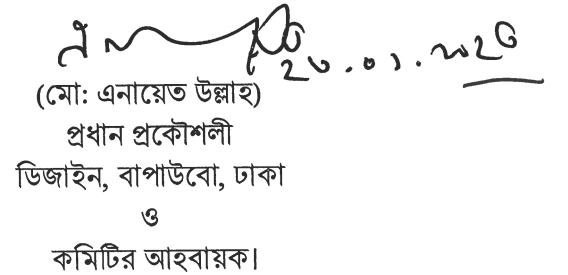 (মো: এনায়েত উল্লাহ)
প্রধান প্রকৌশলী
ডিজাইন, বাপাউবো, ঢাকা
ও
কমিটির আহবায়ক।